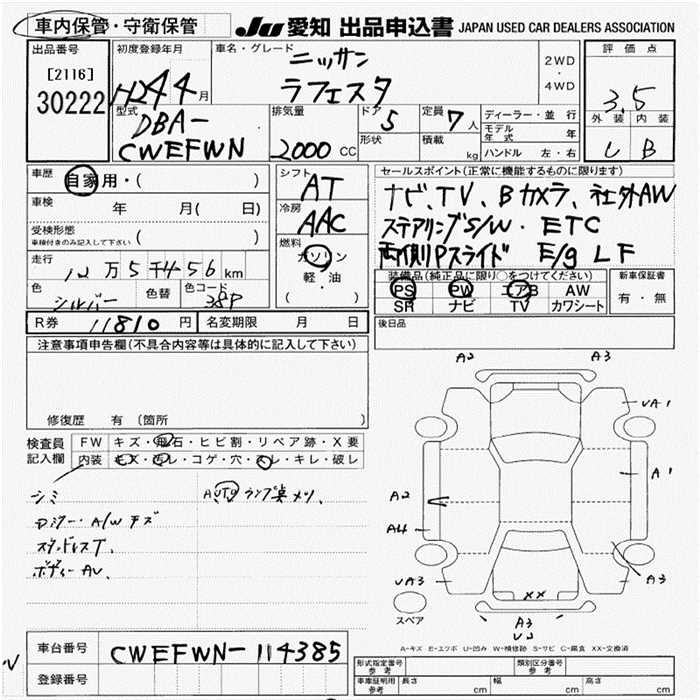 車内保管・守衛保管
JU 愛知 出品申込書 JAPAN USED CAR DEALERS ASSOCIATION
出品番号
[2116]
30222
初度登録年月
H24 4月
車名・グレード
ニッサン
ラフェスタ
2WD
・
4WD
評価点
3.5
外装 内装
B
型式
DBA-
CWEFWN
排気量
2000 CC
ドア 5
形状
定員 7人
積載 kg
ディーラー・並行
モデル年式 年
ハンドル 左・右
車歴 自家用・( )
車検 年 月( 日)
受検形態
車検付きのみ記入して下さい ( )
走行
12万5千456km
色 シルバー 色替 色コード 38P
シフト
AT
冷房
AAC
燃料
ガソリン
軽・油
( ・ )
セールスポイント(正常に機能するものに限ります)
ナビ、TV、Bカメラ、社外AW
ステアリングS/W・ETC
両側Pスライド E/g LF
装備品(純正品に限り○をつけてください)
PS PW エアB AW
SR ナビ TV カワシート
新車保証書
有・無
R券 11810円 名変期限 月 日
後日品
注意事項申告欄(不具合内容等は具体的に記入して下さい)
修復歴 有 (箇所
検査員
記入欄
FW キズ・飛石・ヒビ割・リペア跡・X要
内装 キズ・汚レ・コゲ・穴・スレ・キレ・破レ
シミ
AUTO ランプ
A/W キズ
ボディー AU.
A2 A3
UA1
A1
A2
A4
UA3
A3
XX
A3
スペア
A-キズ E-エクボ U-凹み W-補修跡 S-サビ C-腐食 XX-交換済
車台番号 CWEFWN-114385
登録番号
形式指定番号
参考
類別区分番号
参考
車庫証明用
参考
長さ cm 幅 cm 高さ cm